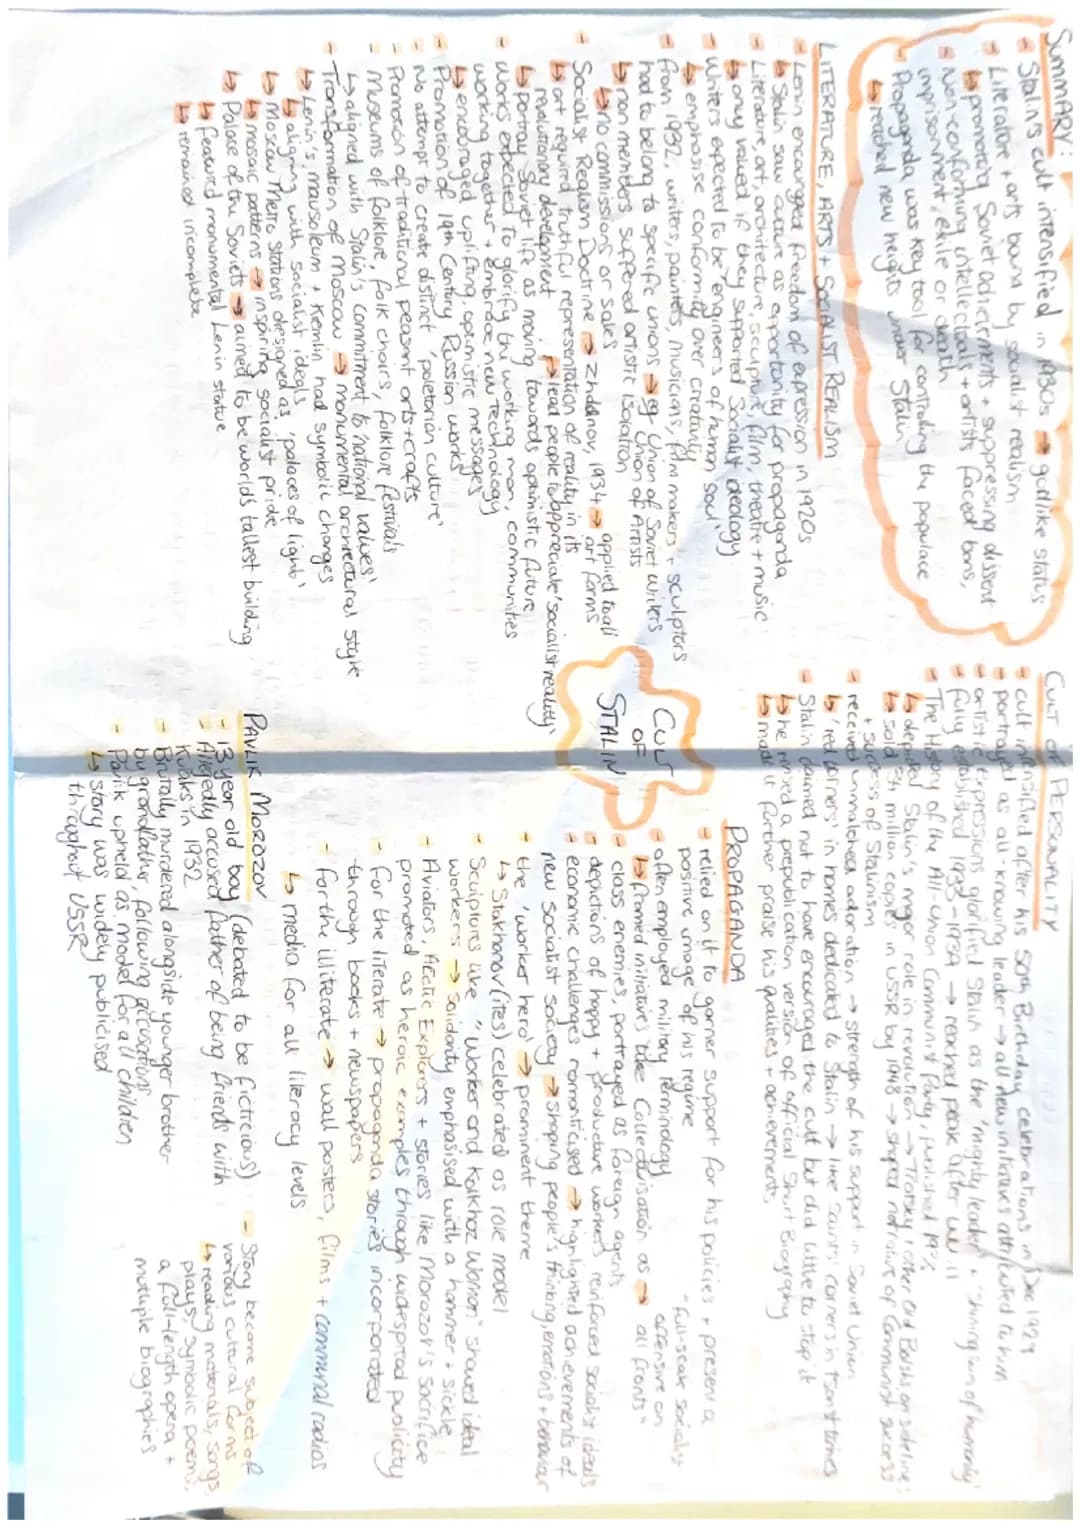 SUMMARY:
- Stalin's cult intensified in 1930s → godlike status
- Literature + arts bound by socialist realism
↳ promoting Soviet achievements + suppressing dissent
- Non-conforming intellectuals + artists faced bans,
imprisonment, exile or death
- Propaganda was key tool for controlling the populace
↳ reached new heights under Stalin
LITERATURE, ARTS + SOCIALIST REALISM
- Lenin encouraged freedom of expression in 1920s
↳ Stalin saw culture as opportunity for propaganda
- Literature, art, architecture, sculpture, film, theatre + music
↳ only valued if they supported Socialist ideology
- Writers expected to be 'engineers of human soul'
↳ emphasise conformity over creativity
- From 1932, writers, painters, musicians, film makers + sculptors
had to belong to specific unions → eg Union of Soviet writers
↳ non members suffered artistic isolation Union of Artists
↳ no commissions or sales
- Socialist Realism Doctrine → Zhdanov, 1934 → applied to all art forms
↳ art required truthful representation of reality in its
revolutionary development → lead people to appreciate 'socialist reality'
↳ portray Soviet life as moving towards optimistic future
- Works expected to glorify the working man, communities
working together + embrace new technology
↳ encouraged uplifting, optimistic messages
- Promotion of 19th Century Russian works
- No attempt to create distinct 'proletarian culture'
- Promotion of traditional peasant arts + crafts
- Museums of folklore, folk choirs, folklore festivals
↳ aligned with Stalin's commitment to 'national values'
- Transformation of Moscow → monumental architectural style
↳ Lenin's mausoleum + Kremlin had symbolic changes
↳ aligning with socialist ideals
↳ Moscow Metro stations designed as 'palaces of light'
↳ mosaic patterns → inspiring socialist pride
↳ Palace of the Soviets → aimed to be worlds tallest building
↳ featured monumental Lenin statue
↳ remained incomplete
CULT
OF
STALIN
CULT OF PERSONALITY
- cult intensified after his 50th Birthday celebrations in Dec 1929
- portrayed as all-knowing leader → all new initiatives attributed to him
- artistic expressions glorified Stalin as the 'mighty leader' + 'shining sun of humanity'
- fully established 1933-1939 → reached peak after WWII
- The History of the All-Union Communist Party, published
↳ depicted Stalin's major role in revolution → Trotsky + other old Bolsheviks sidelined
↳ sold million copies in USSR by 1948 → shaped narrative of Communist success
+ success of Stalinism
- received unmatched adoration → strength of his support in Soviet Union
↳ 'red corners' in homes dedicated to Stalin → like Saints' corners in Tsarist times
- Stalin claimed not to have encouraged the cult but did little to stop it
↳ he revised a prepublication version of official Short Biography
↳ made it further praise his qualities + achievements
PROPAGANDA
- relied on it to garner support for his policies + present a
positive image of his regime
- often employed military terminology
↳ framed initiatives like Collectivisation as → "full-scale socialist offensive on all fronts"
- class enemies, portrayed as foreign agents
- depictions of happy + productive workers reinforced socialist ideals
- economic challenges romanticised → highlighted achievements of
new socialist society → shaping people's thinking, emotions + behaviour
- the 'worker hero' → prominent theme
↳ Stakhanov(ites) celebrated as role model
- Sculptures like "Worker and Kolkhoz Woman" showed ideal
workers → solidarity emphasised with a hammer + sickle
- Aviators, Arctic Explorers + stories like Morozov's Sacrifice
promoted as heroic examples through widespread publicity
- for the literate → propaganda stories incorporated
through books + newspapers
- for the illiterate → wall posters, films + communal radios
↳ media for all literacy levels
PAVLIK MOROZOV
- 13 year old boy (debated to be ficticious)
- Allegedly accused father of being friends with
Kulaks in 1932
- Brutally murdered alongside younger brother
by grandfather, following accusations
- Pavlik upheld as model for all children
↳ Story was widely publicised
throughout USSR
- Story become subject of
various cultural forms
↳ reading materials, songs,
plays, symbolic poem,
a full-length opera +
multiple biographies